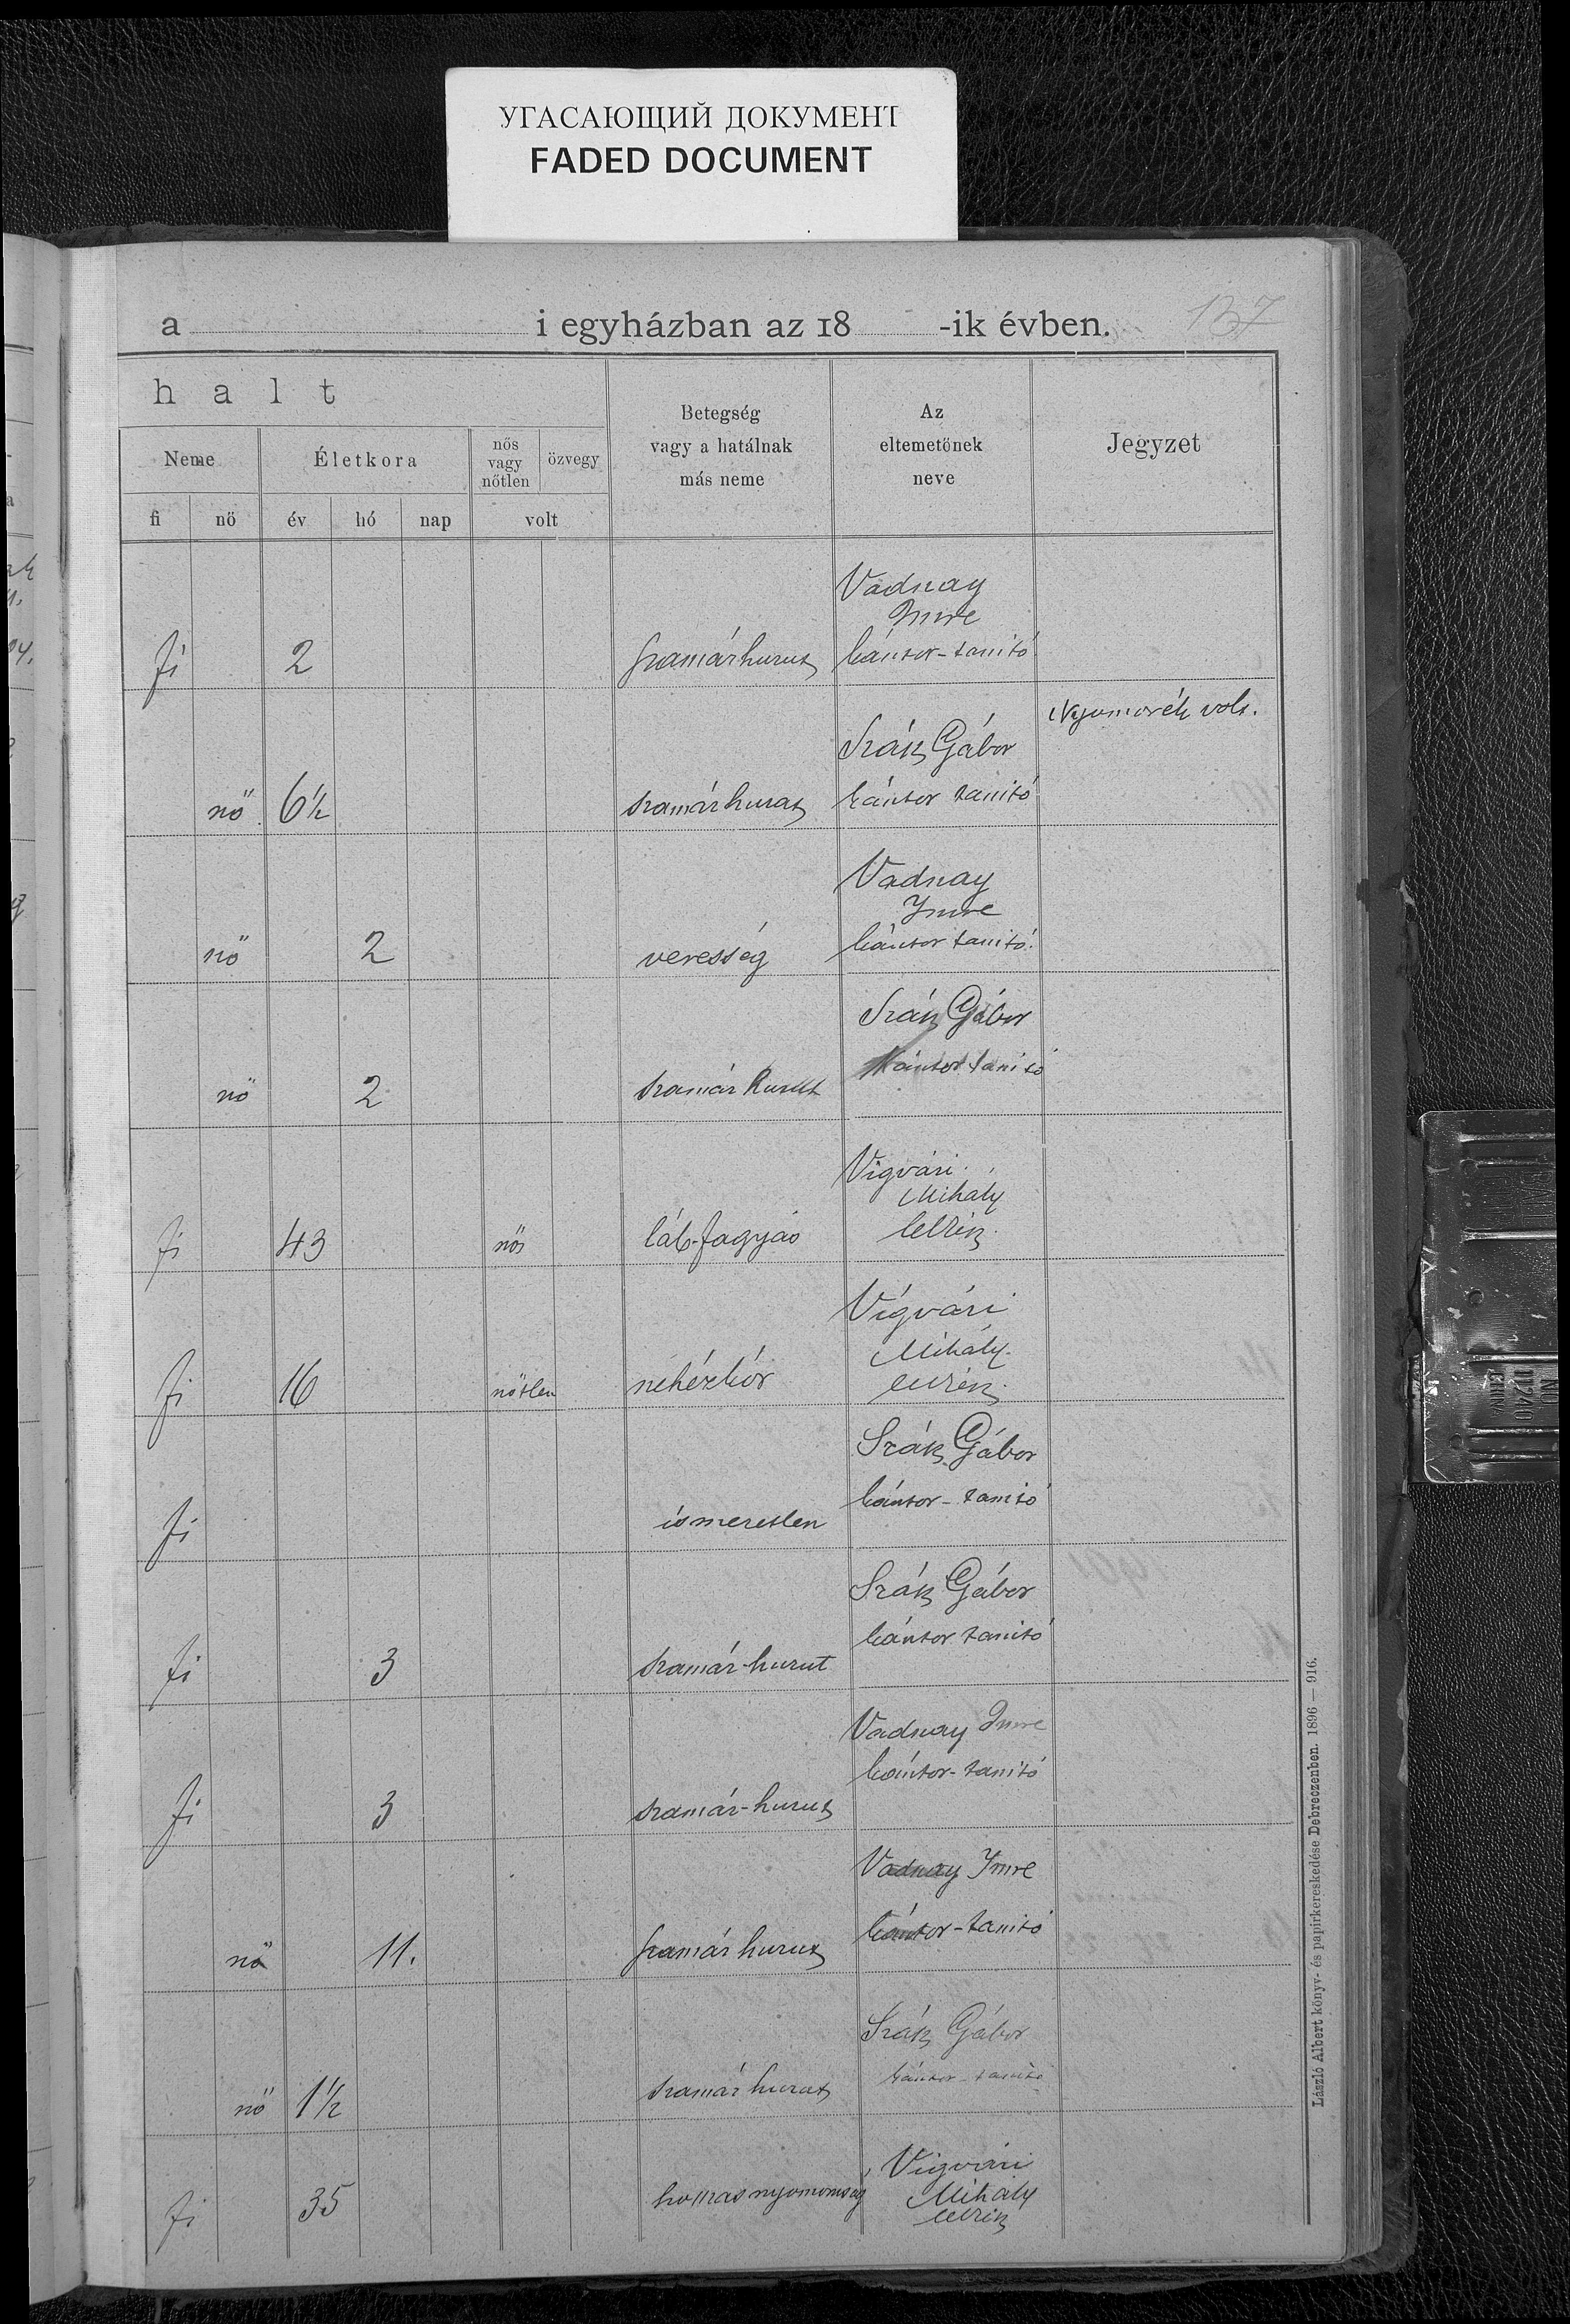 УГАСАЮЩИЙ ДОКУМЕНТ
FADED DOCUMENT
137
a i egyházban az 18 -ik évben.
halt
Neme
Életkora
nős vagy nőtlen
özvegy
Betegség vagy a hatálnak más neme
Az eltemetőnek neve
Jegyzet
fi nö év hó nap volt
Vadnay
Imre
fi 2 szamárhurut kántor-tanitó
Nyomorék volt.
Szák Gábor
nö 6½ szamárhurut kántor tanitó
Vadnay
Imre
nö 2 veresség kántor tanitó.
Szák Gábor
kántor tanitó
nö 2 szamár hurut
Vigvári
Mihály
fi 43 nös láb-fagyás lelkész.
Vígvári
Mihály.
fi 16 nötlen nehézkór lelkész.
Szák Gábor
kántor-tanitó
fi ismeretlen
Szák Gábor
kántor tanitó
fi 3 szamár-hurut
Vadnay Imre
kántor-tanitó
fi 3 szamár-hurut
Vadnay Imre
kántor-tanitó
nö 11. szamár hurut
Szák Gábor
kántor-tanitó
nö 1½ szamár hurut
Vigvári
Mihály
lelkész
fi 35
László Albert könyv- és papirkereskedése Debreczenben. 1896 — 916.
NO